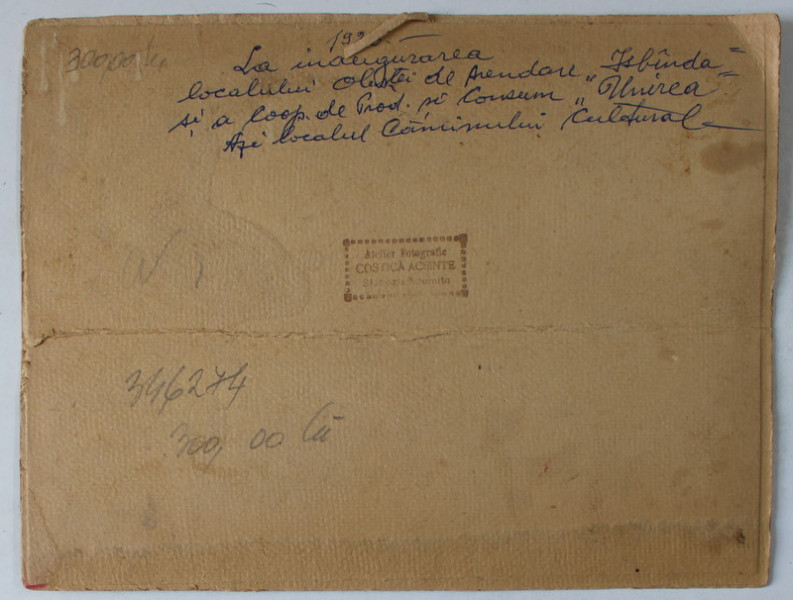 300,00 lei
La inaugurarea
localului Obștei de Arendare „Isbînda"
și a Coop. de Prod. și Consum „Unirea"
Azi localul Căminului Cultural
Atelier Fotografic
COSOCĂ ACSENTE
346274
300,00 lei